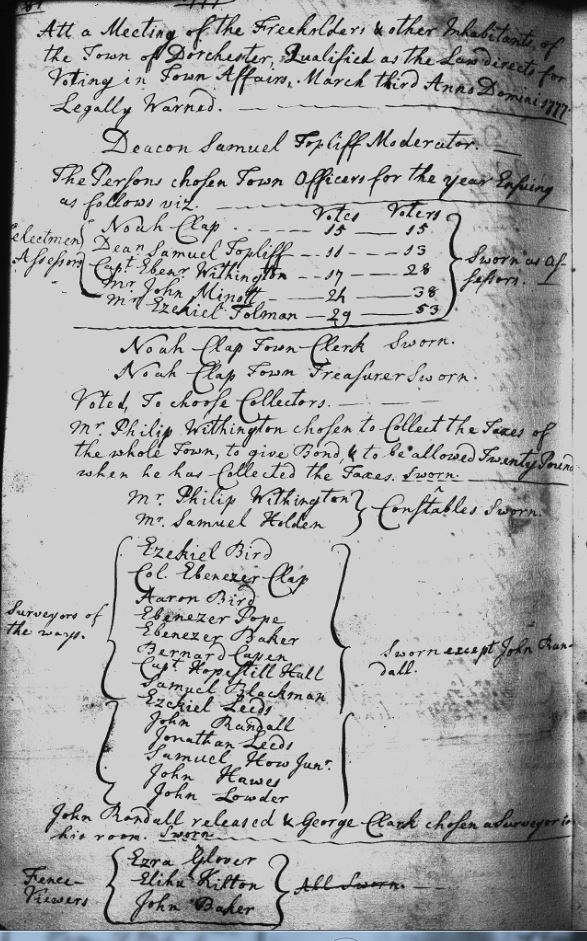 Att a Meeting of the Freeholders & other Inhabitants, of
the Town of Dorchester, Qualified as the Law directs for
Voting in Town Affairs, March third Anno Domini 1777.
Legally Warned.
Deacon Samuel Topliff Moderator.
The Persons chosen Town Officers for the year Ensuing
as follows viz. Votes Voters
Selectmen Assessors
Noah Clap 15 15
Dean Samuel Topliff 11 13
Capt. Ebenr. Withington 17 28
Mr. John Minott 24 38
Mr. Ezekiel Tolman 29 53
Sworn as As-
sessors.
Noah Clap Town Clerk Sworn.
Noah Clap Town Treasurer Sworn.
Voted, To choose Collectors.
Mr. Philip Withington chosen to Collect the Taxes of
the whole Town, to give Bond, & to be allowed Twenty Pound
when he has Collected the Taxes. Sworn.
Mr. Philip Withington
Mr. Samuel Holden
Constables Sworn.
Surveyors of
the ways.
Ezekiel Bird
Col. Ebenezer Clap
Aaron Bird
Ebenezer Pope
Ebenezer Baker
Bernard Capen
Capt Hopestill Hall
Samuel Blackman
Ezekiel Leeds
John Randall
Jonathan Leeds
Samuel How Junr.
John Hawes
John Lowder
Sworn except John Ran-
dall.
John Randall released & George Clark chosen a Surveyor in
his room. Sworn
Fence
Viewers
Ezra Glover
Elihu Kilton
John Baker
All Sworn.